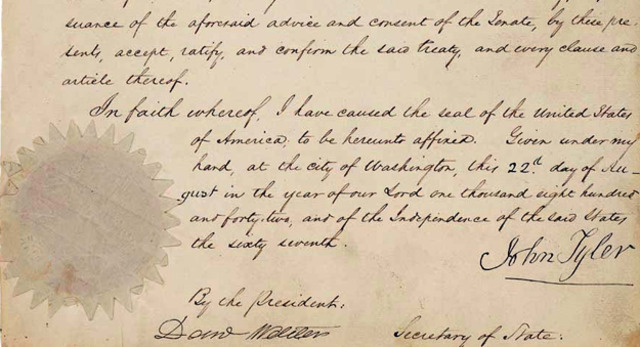 suance of the aforesaid advice and consent of the Senate, by these pre-
sents, accept, ratify, and confirm the said treaty, and every clause and
article thereof.
In faith whereof, I have caused the seal of the United States
of America to be hereunto affixed. Given under my
hand, at the city of Washington, this 22d. day of Au-
gust in the year of our Lord one thousand eight hundred
and forty-two, and of the Independence of the said States
the sixty seventh.
John Tyler
By the President:
Danl Webster
Secretary of State: